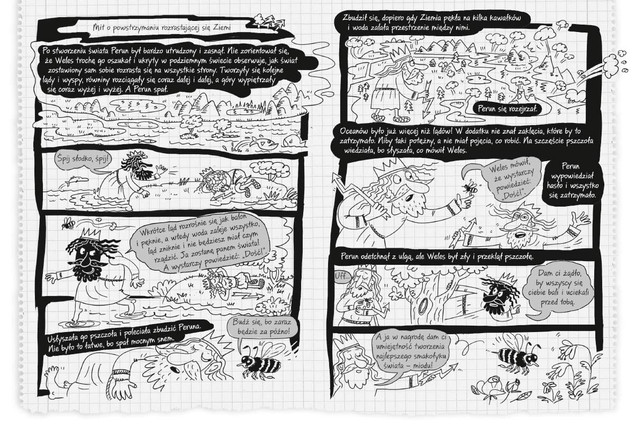 Mit o powstrzymaniu rozrastającej się Ziemi
Po stworzeniu świata Perun był bardzo utrudzony i zasnął. Nie zorientował się,
że Weles trochę go oszukał i ukryty w podziemnym świecie obserwuje, jak świat
zostawiony sam sobie rozrasta się na wszystkie strony. Tworzyły się kolejne
lądy i wyspy, równiny rozciągały się coraz dalej i dalej, a góry wypiętrzały
się coraz wyżej i wyżej. A Perun spał.
Śpij słodko, śpij!
Wkrótce ląd rozrośnie się jak balon
i pęknie, a wtedy woda zaleje wszystko,
ląd zniknie i nie będziesz miał czym
rządzić. Ja zostanę panem świata!
A wystarczy powiedzieć: „Dość!”
Usłyszała go pszczoła i poleciała zbudzić Peruna.
Nie było to łatwe, bo spał mocnym snem.
Budź się, bo zaraz
będzie za późno!
Zbudził się, dopiero gdy Ziemia pękła na kilka kawałków
i woda zalała przestrzenie między nimi.
Perun się rozejrzał.
Oceanów było już więcej niż lądów! W dodatku nie znał zaklęcia, które by to
zatrzymało. Niby taki potężny, a nie miał pojęcia, co robić. Na szczęście pszczoła
wiedziała, bo słyszała, co mówił Weles.
Weles mówił,
że wystarczy
powiedzieć:
„Dość!”
Perun
wypowiedział
hasło i wszystko
się zatrzymało.
Perun odetchnął z ulgą, ale Weles był zły i przeklął pszczołę.
Uff!
Dam ci żądło,
by wszyscy się
ciebie bali i uciekali
przed tobą.
A ja w nagrodę dam ci
umiejętność tworzenia
najlepszego smakołyku
świata – miodu!